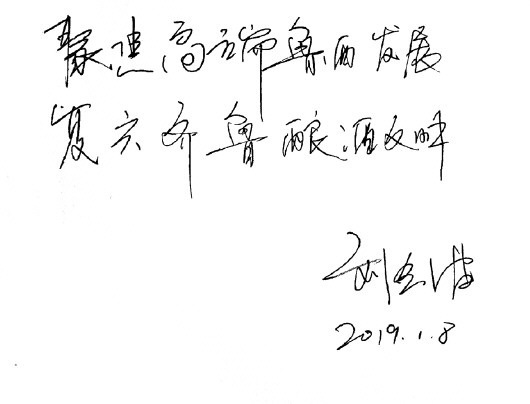 聚焦高端鲁酒发展
复兴齐鲁酿酒文
刘念波
2019.1.8